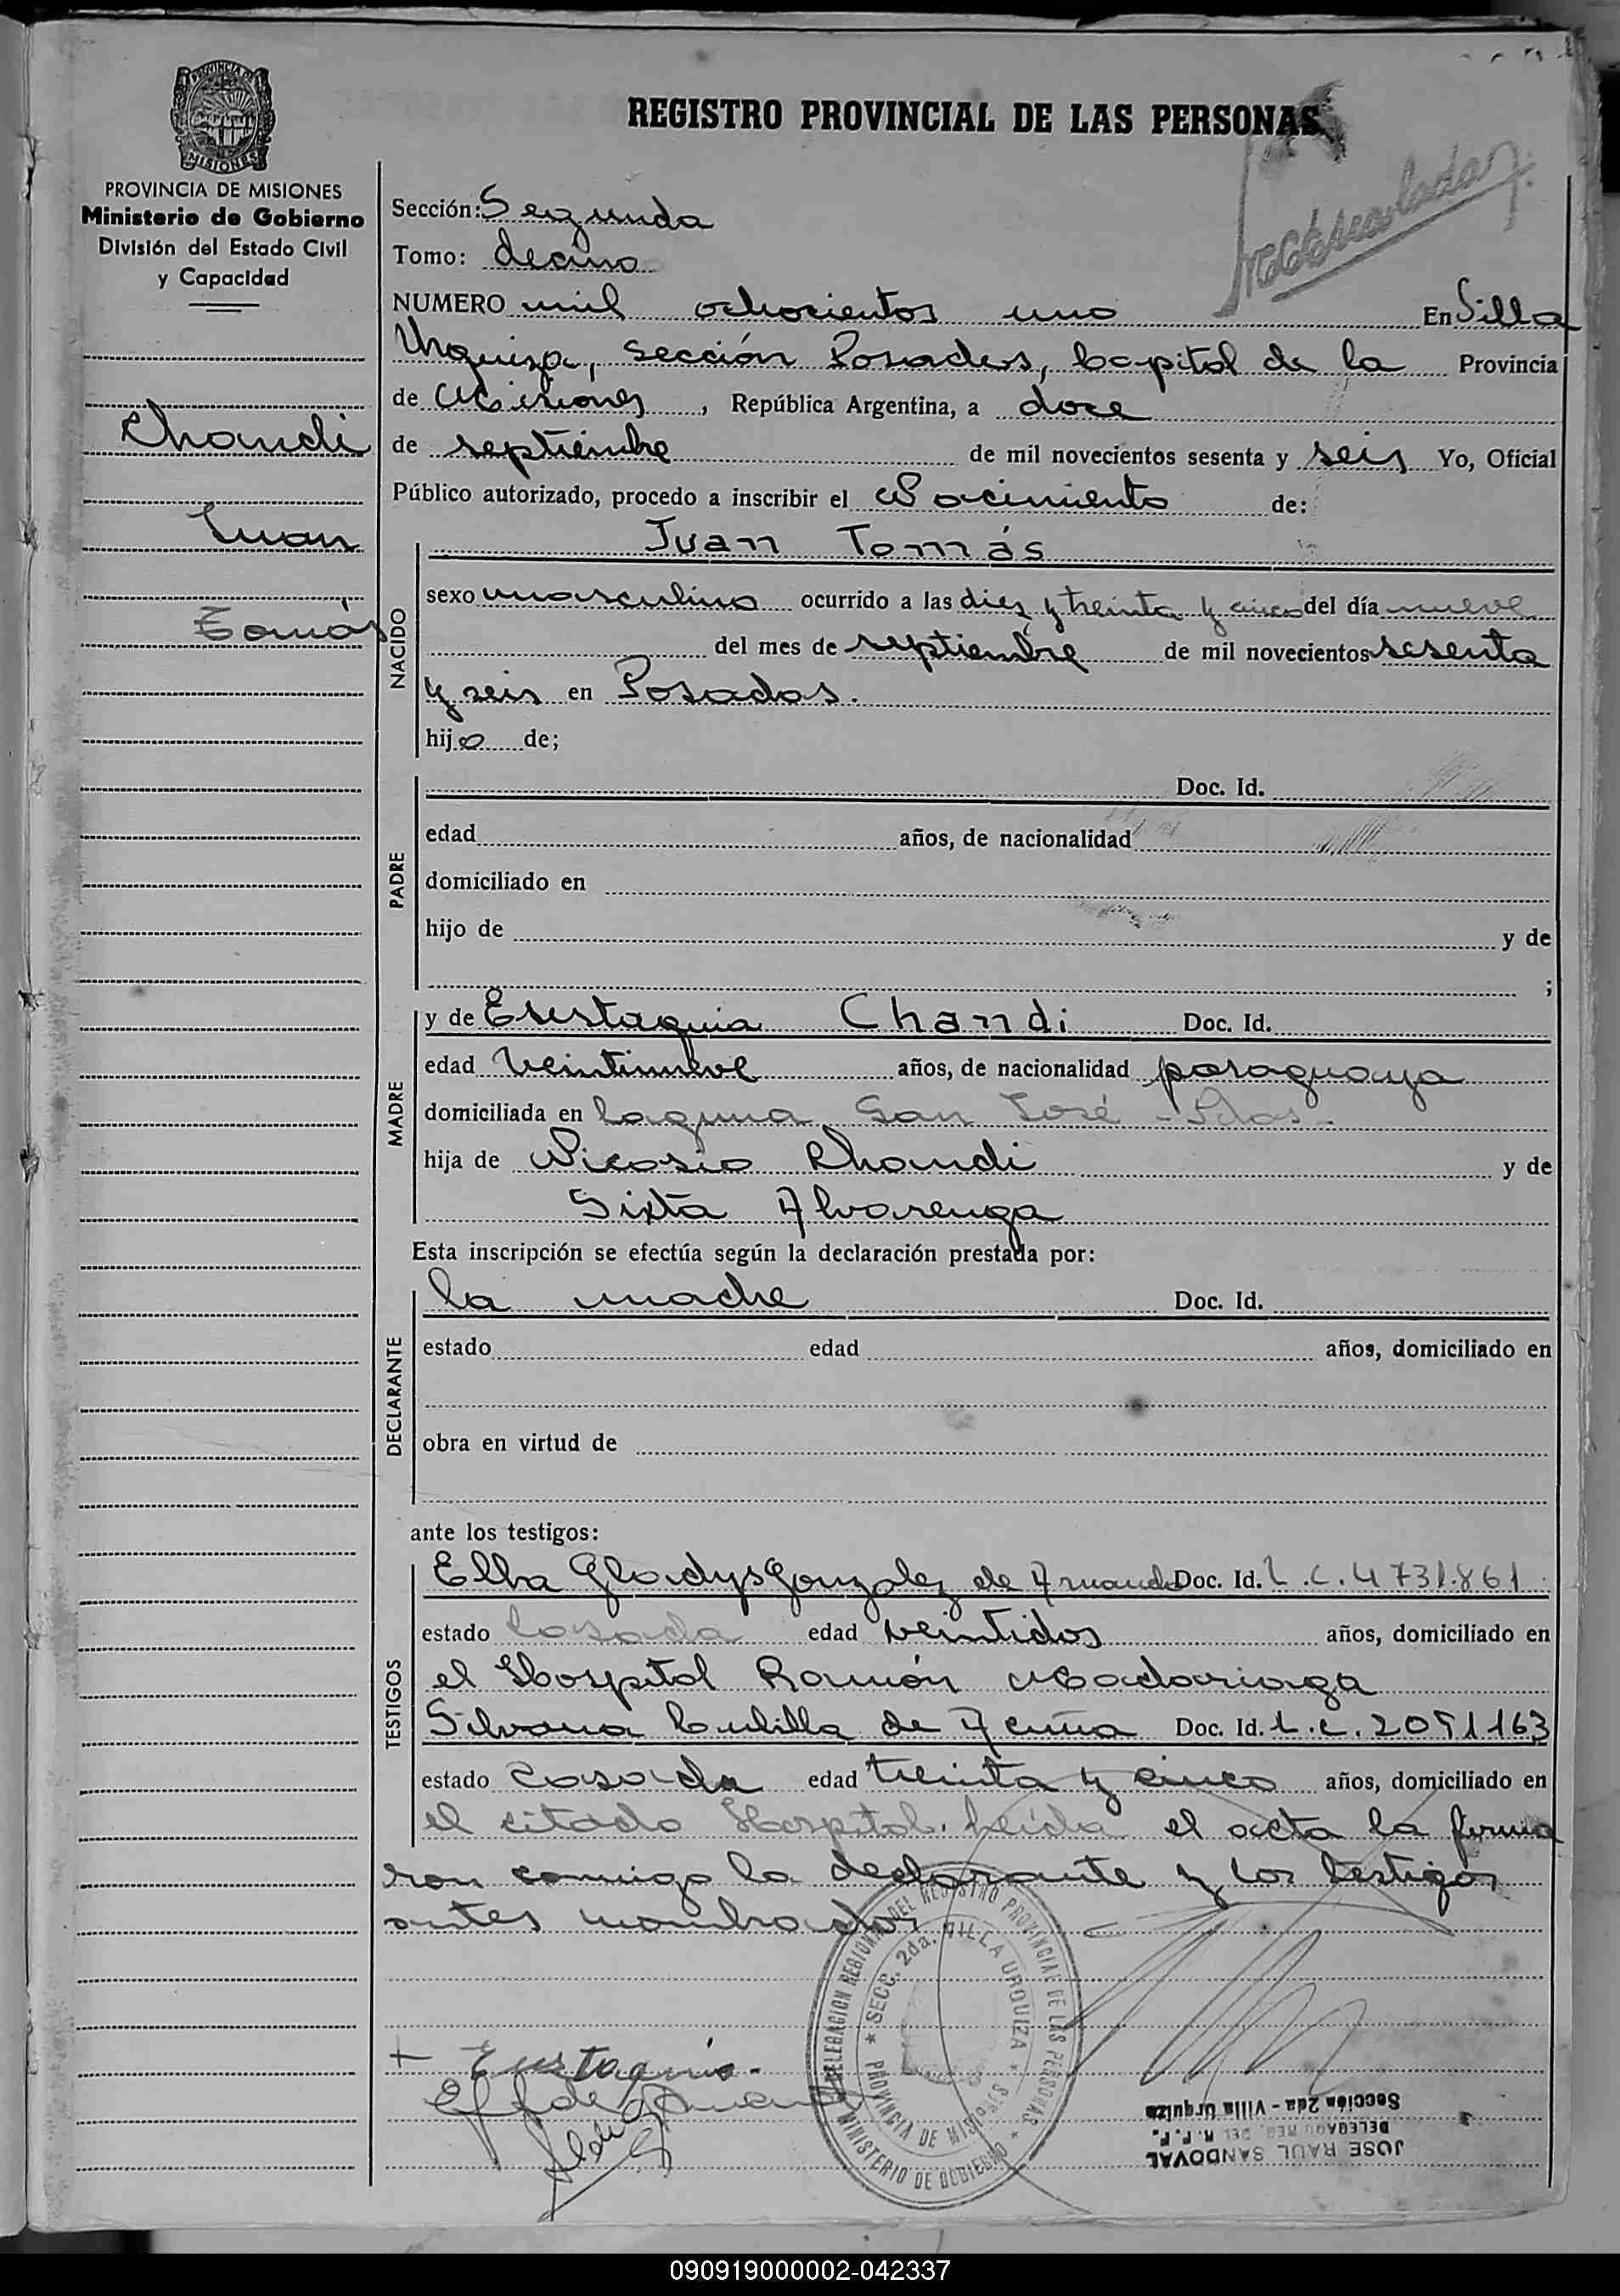 REGISTRO PROVINCIAL DE LAS PERSONAS
PROVINCIA DE
MISIONES
PROVINCIA DE MISIONES
Ministerio de Gobierno
División del Estado Civil
y Capacidad
Chandi
Juan
Tomás
Sección: Segunda
Tomo: decimo
NUMERO mil ochocientos uno En Villa
Urquiza, Sección Posadas, Capital de la Provincia
de Misiones, República Argentina, a doce
de septiembre de mil novecientos sesenta y seis Yo, Oficial
Público autorizado, procedo a inscribir el Nacimiento de:
NACIDO
Juan Tomás
sexo masculino ocurrido a las diez y treinta y cinco del día nueve
del mes de septiembre de mil novecientos sesenta
y seis en Posadas.
hijo de;
PADRE
Doc. Id.
edad años, de nacionalidad
domiciliado en
hijo de y de
;
MADRE
y de Eustaquia Chandi Doc. Id.
edad veintinueve años, de nacionalidad paraguaya
domiciliada en Laguna San José - Pdas.
hija de Nicasio Chandi y de
Sixta Alvarenga
Esta inscripción se efectúa según la declaración prestada por:
DECLARANTE
la madre Doc. Id.
estado edad años, domiciliado en
obra en virtud de
ante los testigos:
TESTIGOS
Elba Gladys Gonzalez de Doc. Id. L.C. 4731.861
estado Casada edad veintidos años, domiciliado en
el Hospital Ramón Madariaga
Silvana Cubilla de Acuña Doc. Id. L.C. 2091163
estado casada edad treinta y cinco años, domiciliado en
el citado Hospital. Leída el acta la firma
ron conmigo la declarante y los testigos
antes nombrados
DELEGACION REGIONAL DEL REGISTRO PROVINCIAL DE LAS PERSONAS
SECC. 2da. VILLA URQUIZA
PROVINCIA DE MISIONES
MINISTERIO DE GOBIERNO
+ Eustaquia.
JOSE RAUL SANDOVAL
DELEGADO REG. DEL R.P.P.
Sección 2da - Villa Urquiza
090919000002-042337